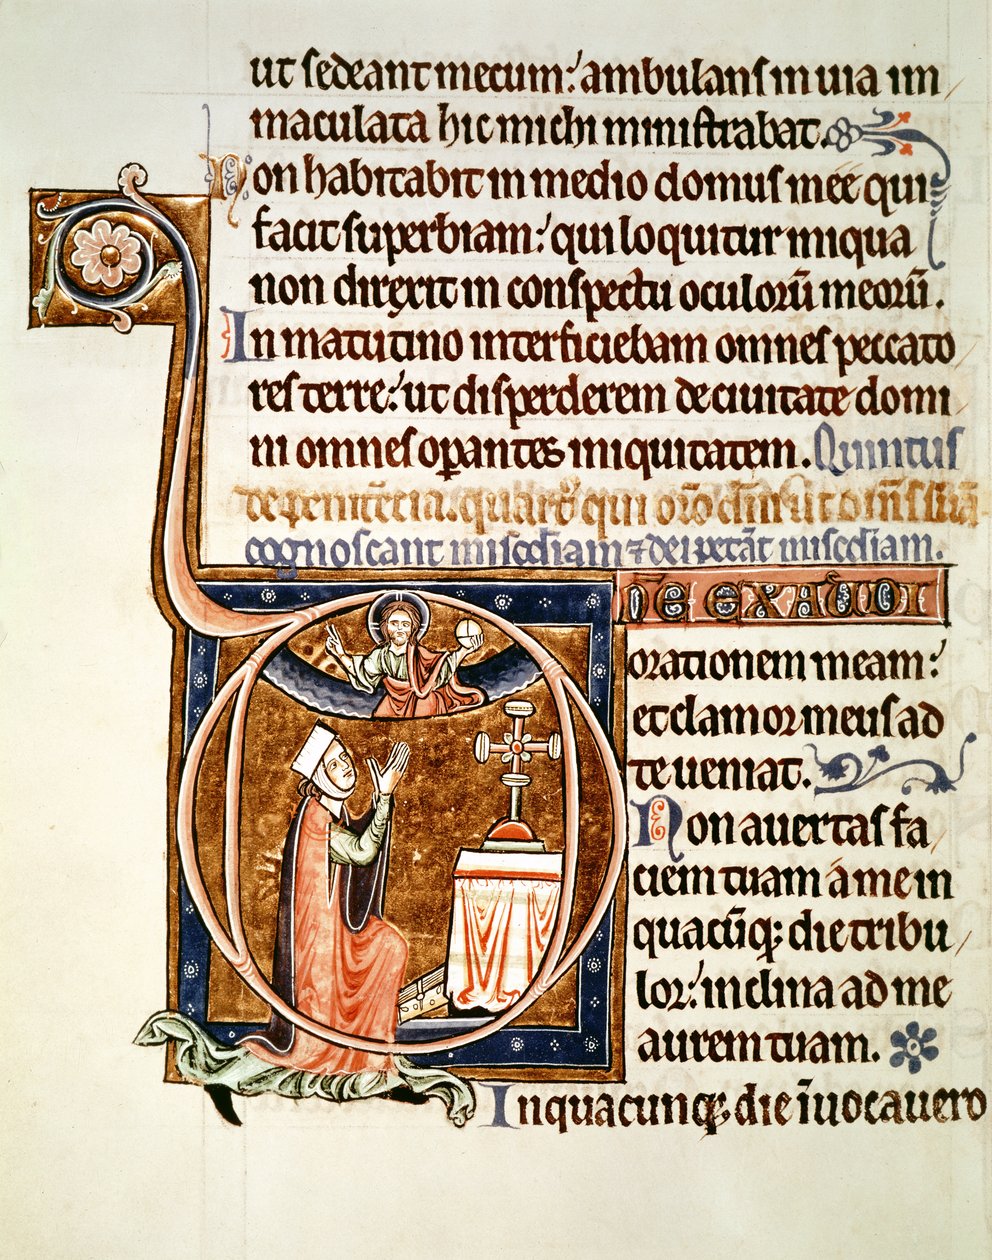 ut sedeant mecum: ambulans in uia im
maculata hic michi ministrabat.
Non habitabit in medio domus mee qui
facit superbiam: qui loquitur iniqua
non direxit in conspectu oculorū meorū.
In matutino interficiebam omnes peccato
res terre: ut disperderem de ciuitate domi
ni omnes opantes iniquitatem. Quintus
de penitēcia. qui orō
cognoscant
Dne exaudi
orationem meam:
et clamor meus ad
te ueniat.
Non auertas fa
ciem tuam a me in
quacūq; die tribu
lor: inclina ad me
aurem tuam.
In quacunq; die īuocauero